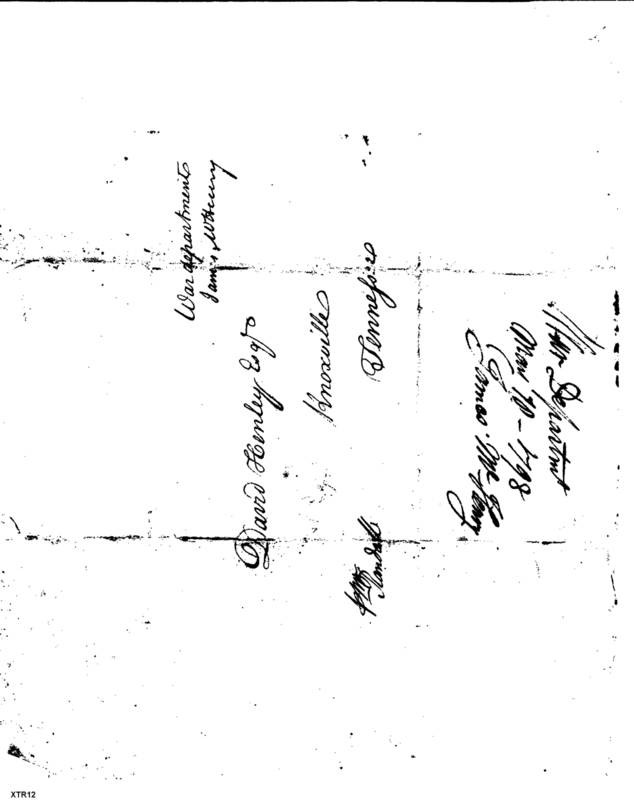 War department
James McHenry
David Henley Esqr
Knoxville
Tennessee
War Departmt
1798
James McHenry
XTR12